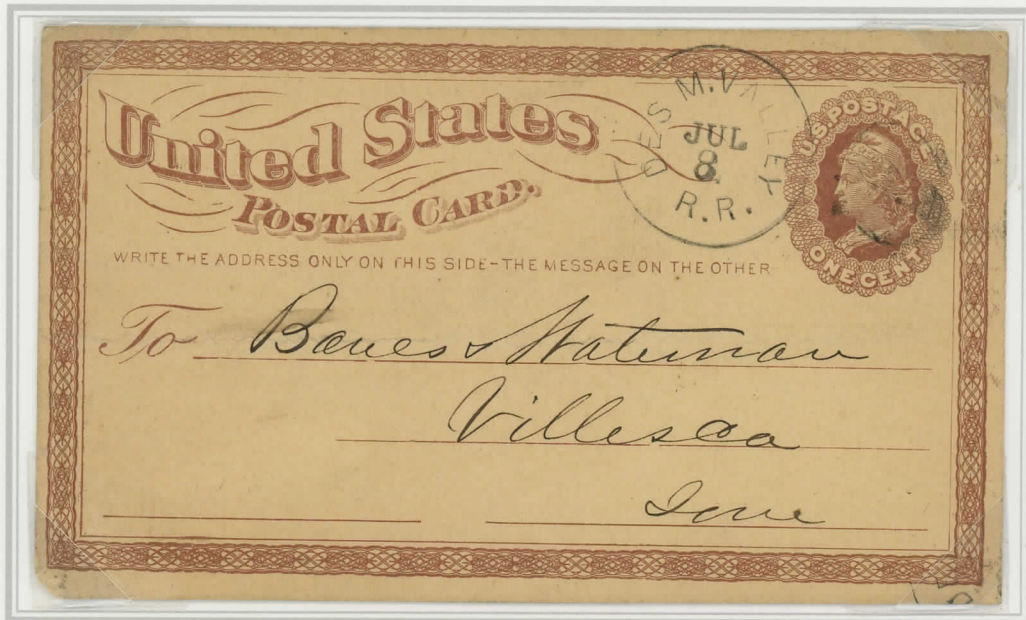 United States
POSTAL CARD.
DES M. VALLEY
JUL
8.
R.R.
U.S. POSTAGE
ONE CENT
WRITE THE ADDRESS ONLY ON THIS SIDE-THE MESSAGE ON THE OTHER
To Banes & Waterman
Villesca
Iowa